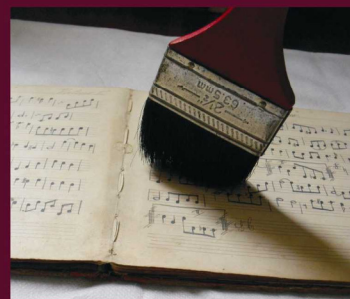 2½"
63.5mm